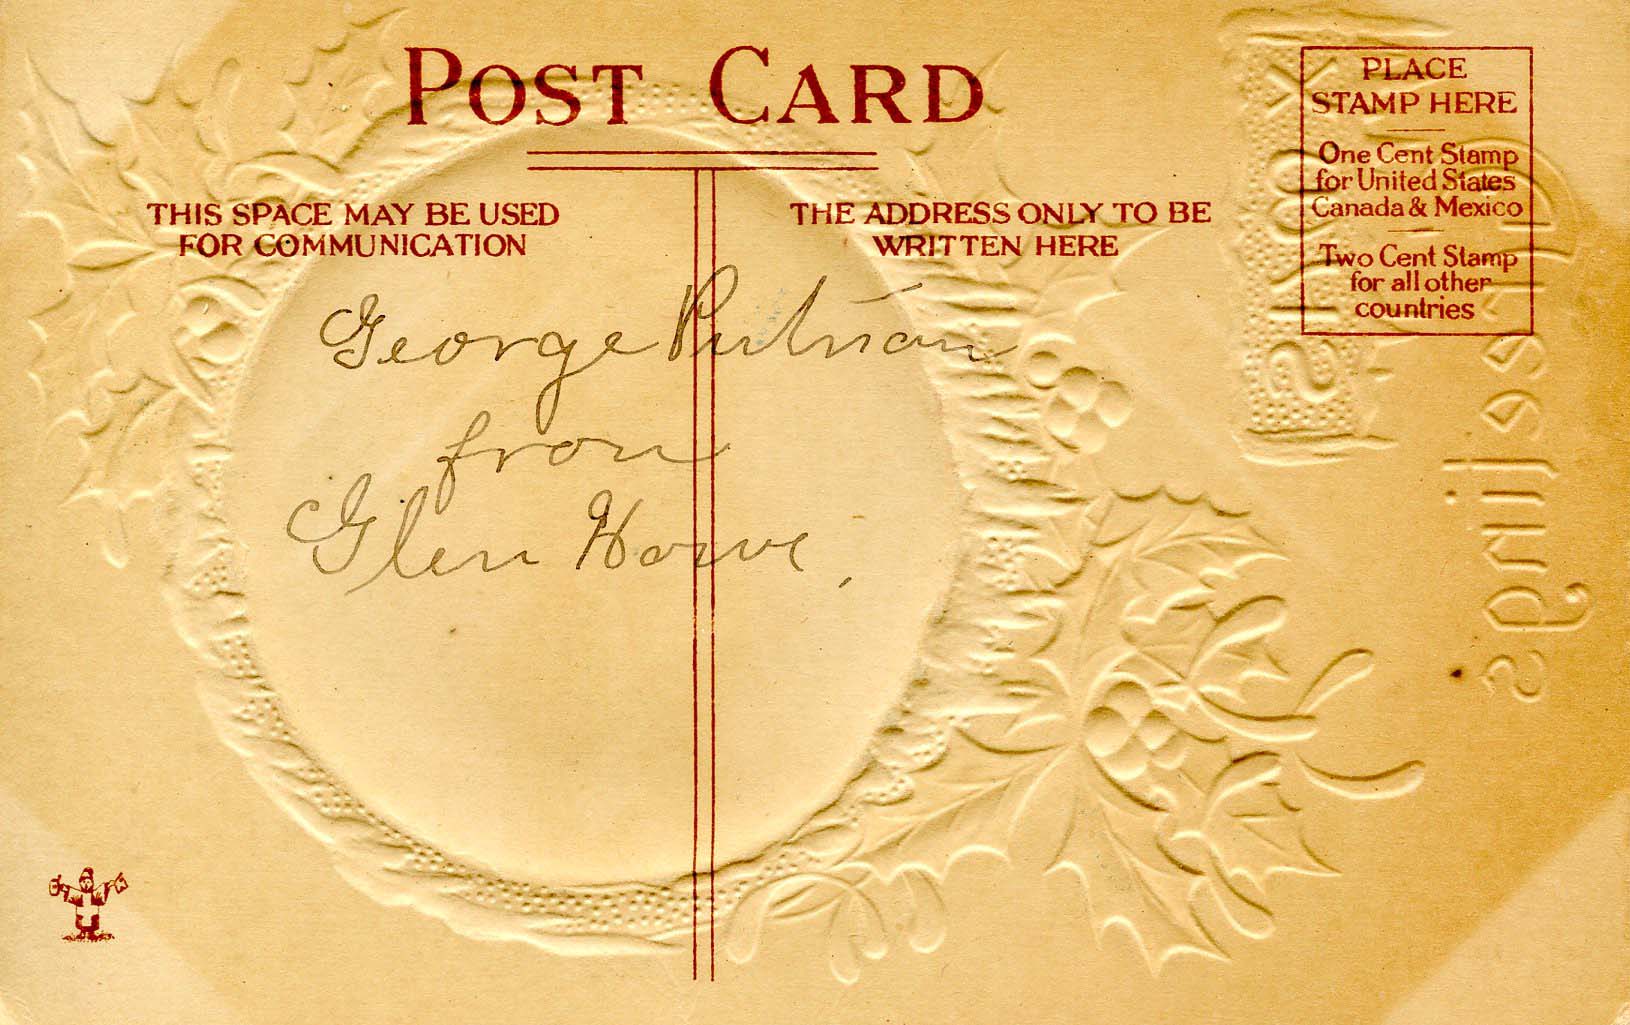 POST CARD
THIS SPACE MAY BE USED
FOR COMMUNICATION
THE ADDRESS ONLY TO BE
WRITTEN HERE
PLACE
STAMP HERE
One Cent Stamp
for United States
Canada & Mexico
Two Cent Stamp
for all other
countries
George Putnam
from
Glen Howe,